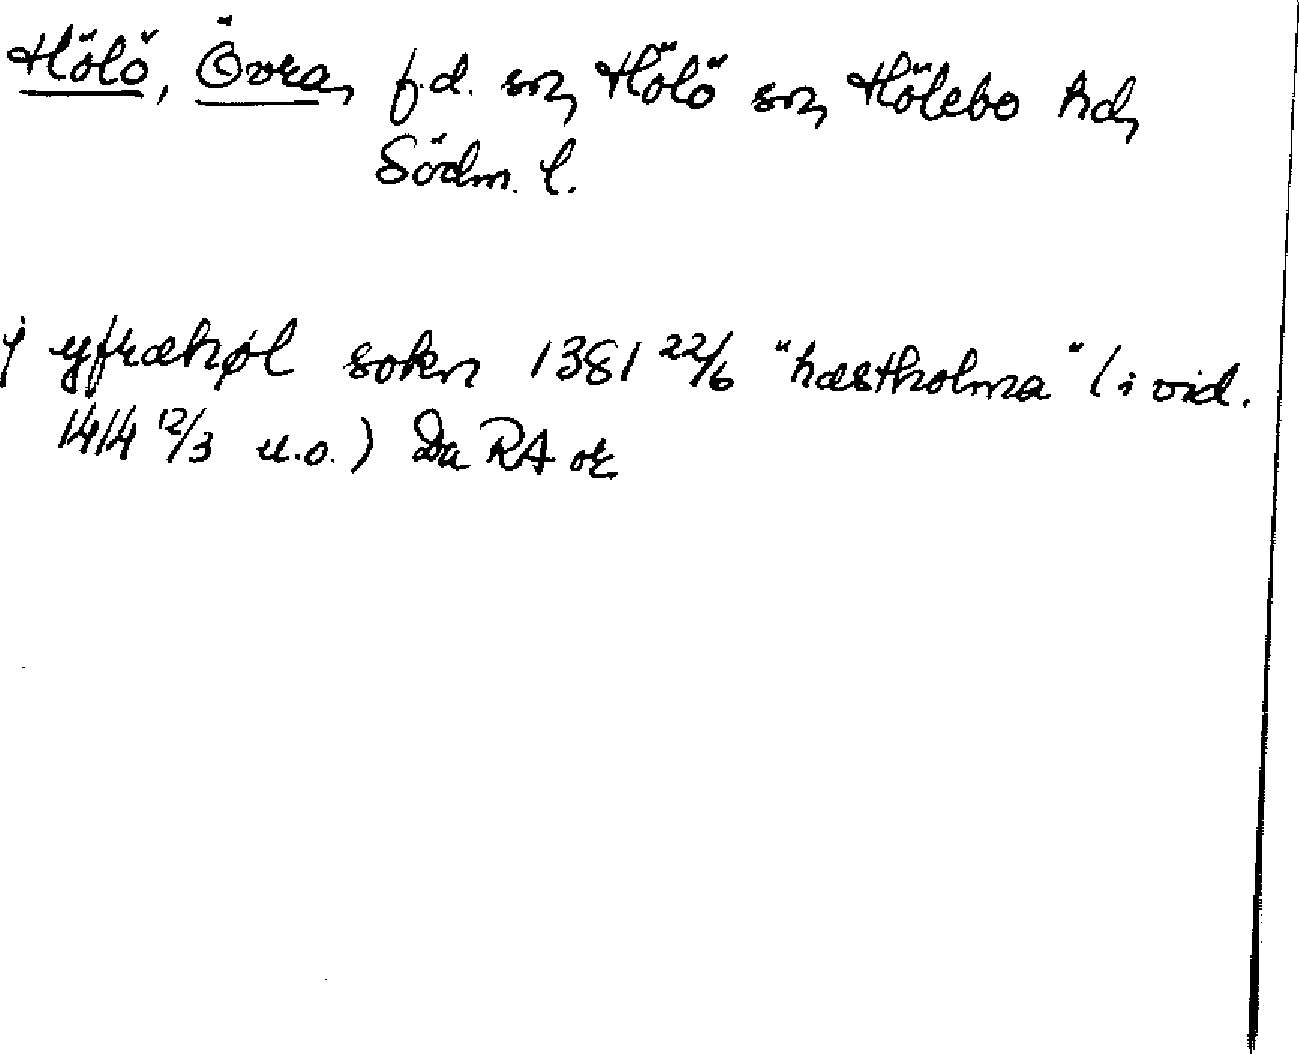 Hölö, Övra, f.d. sn, Hölö sn, Hölebo hd,
Södm. l.
j yfræhøl sokn 1381 22/6 "hæstholma" (i vid.
1414 12/3 u.o.) Da RA or.